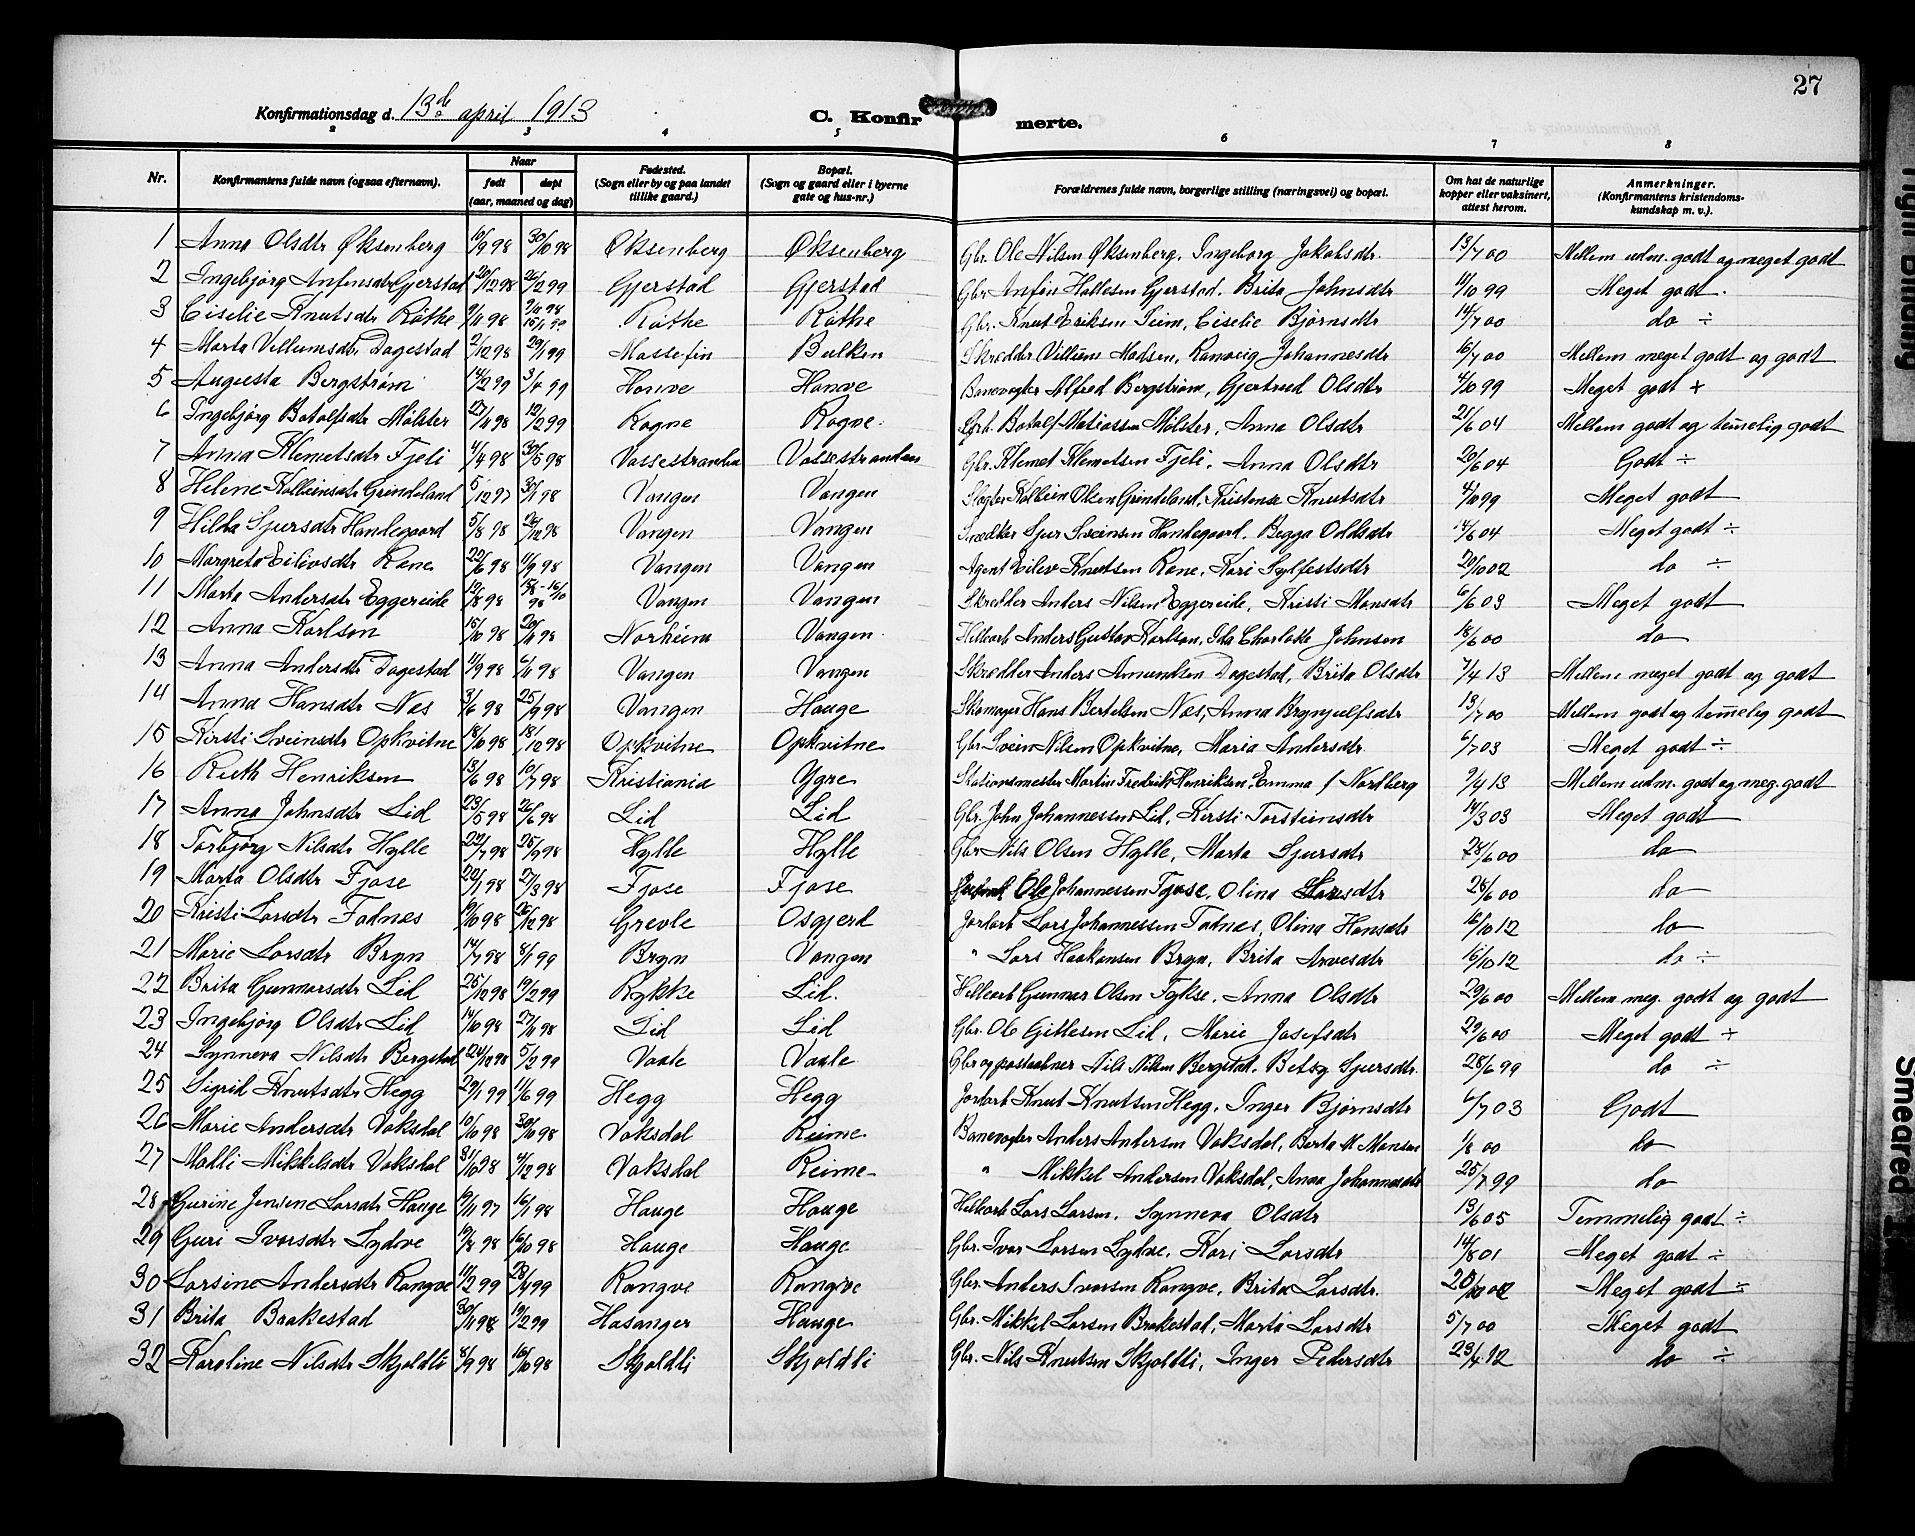 27
Konfirmationsdag d. 13de april 1913
C. Konfirmerte.
2 3 4 5 6 7 8
Nr. Konfirmantens fulde navn (ogsaa efternavn). Naar født døpt (aar, maaned og dag) Fødested. (Sogn eller by og paa landet tillike gaard.) Bopæl. (Sogn og gaard eller i byerne gate og hus-nr.) Forældrenes fulde navn, borgerlige stilling (næringsvei) og bopæl. Om hat de naturlige kopper eller vaksinert, attest herom. Anmerkninger. (Konfirmantens kristendomskundskap m. v.).
1 Anna Olsdtr Øksenberg 16/9 98 30/10 98 Øksenberg Øksenberg Gbr. Ole Nilsen Øksenberg, Ingeborg Jakobsdtr. 13/7 00 Mellem udm. godt og meget godt
2 Ingebjørg Anfinsdtr Gjerstad 20/12 98 26/12 99 Gjerstad Gjerstad Gbr. Anfin Hallesen Gjerstad. Brita Johnsdtr 4/10 99 Meget godt.
3 Ciselie Knutsdtr Røthe 9/11 98 Røthe Røthe Gbr. Knut Eriksen Seim, Ciselie Bjørnsdtr 14/7 00 do ÷
4 Marta Villumsdtr Dagestad 2/12 98 29/1 99 Bulken Skrædder Villum Madsen, Ranveig Johannesdtr 16/7 00 Mellem meget godt og godt
5 Augusta Bergstrøm 14/2 99 3/4 99 Honve Honve Banevogter Alfred Bergstrøm, Gjertrud Olsdtr 4/10 99 Meget godt +
6 Ingebjørg Botolfsdtr Mølster 27/11 98 12/2 99 Rogne Rogne. Botolf Matiassen Mølster, Anna Olsdtr 21/6 04 Mellem godt og temmelig godt
7 Anna Klemetsdtr Fjeli 4/4 98 30/5 98 Vossestranden Vossestranden Gbr. Klemet Klemetsen Fjeli, Anna Olsdtr 20/6 04 Godt ÷
8 Helene Kolbeinsdtr Grindeland 5/12 97 30/1 98 Vangen Vangen Slagter Kolbein Olsen Grindeland, Kristense Knutsdtr 4/10 99 Meget godt
9 Hilda Sjursdtr Handegaard 5/8 98 26/12 98 Vangen Vangen Snedker Sjur Sveinsen Handegaard. Begga Oddsdtr 14/6 04 Meget godt ÷
10 Margreta Eilivsdtr Rene 22/6 98 11/9 98 Vangen Vangen Agent Eilev Knutsen Rene, Kari Sylfestsdtr 20/10 02 do ÷
11 Marta Andersdtr Eggereide 12/8 98 Vangen Vangen Skrædder Anders Nilsen Eggereide, Kristi Monsdtr 6/6 03 Meget godt
12 Anna Karlson 15/10 98 20/11 98 Norheim Vangen. Helleark Anders Gustav Karlson, Ida Charlotte Johnsen 18/6 00 do
13 Anna Andersdtr Dagestad 11/9 98 6/11 98 Vangen Vangen Skrædder Anders Amundsen Dagestad, Brita Olsdtr 7/4 13 Mellem meget godt og godt
14 Anna Hansdtr Næs 3/6 98 25/9 98 Vangen Hauge Skomager Hans Bertelsen Næs, Anna Brynjulfsdtr 13/7 00 Mellem godt og temmelig godt
15 Kirsti Sveinsdtr Opkvitne 18/10 98 18/12 98 Opkvitne Opkvitne Gbr. Svein Nilsen Opkvitne, Maria Andersdtr. 6/7 03 Meget godt ÷
16 Ruth Henriksen 13/6 98 10/7 98 Kristiania Ygre Stationsmester Martin Fredrik Henriksen, Emma f Nordberg 9/4 13 Mellem udm. godt og meg. godt
17 Anna Johnsdtr Lid 23/5 98 26/6 98 Lid Lid Gbr. John Johannessen Lid, Kirsti Torsteinsdtr 14/3 03 Meget godt
18 Torbjørg Nilsdtr Hylle 22/7 98 25/9 98 Hylle Hylle Gbr Nils Olsen Hylle, Marta Sjursdtr 28/6 00 do
19 Marta Olsdtr Fjose 22/1 98 27/3 98 Fjose Fjose Ole Johannessen Fjose, Olina Larsdtr 28/6 00 do
20 Kristi Larsdtr Fadnes 19/10 98 26/12 98 Grevle Osgjerd Jordarb Lars Johannessen Fadnes, Olina Hansdtr 16/10 12 do
21 Marie Larsdtr Bryn 14/7 98 8/1 99 Bryn Vangen " Lars Haakonsen Bryn, Brita Arvesdtr 16/10 12 do ÷
22 Brita Gunnarsdtr Lid 25/12 98 19/2 99 Rykke Lid. Hellearb Gunnar Olsen Fykse, Anna Olsdtr 29/6 00 Mellem meg. godt og godt
23 Ingebjørg Olsdtr Lid 14/10 98 27/11 98 Lid Lid Gbr. Ole Gitlesen Lid, Marie Josefsdtr 29/6 00 Meget godt ÷
24 Synneva Nilsdtr Bergstad 5/2 99 Vaale Vaale Gbr og postaabner Nils Nilsen Bergstad. Betsy Sjursdtr. 28/6 99 do ÷
25 Sigrid Knutsdtr Hegg 29/1 99 11/6 99 Hegg Hegg Jordarb Knut Knutsen Hegg, Inger Bjørnsdtr 6/7 03 Godt
26 Marie Andersdtr Vaksdal 10/10 98 30/10 98 Vaksdal Reime Banevogter Anders Andersen Vaksdal, Berta M. Monsen 1/8 00 do
27 Malli Mikkelsdtr Vaksdal 31/10 98 4/12 98 Vaksdal Reime " Mikkel Andersen Vaksdal, Anna Johannesdtr 25/7 99 do
28 Gurine Jensine Larsdtr Hauge 19/11 97 16/1 98 Hauge Hauge Hellearb Lars Larsen, Synneva Olsdtr 13/6 05 Temmelig godt ÷
29 Guri Ivarsdtr Lydve 19/8 98 16/10 98 Hauge Hauge Gbr. Ivar Larsen Lydve, Kari Larsdtr 14/8 01 Meget godt ÷
30 Larsine Andersdtr Rongve 11/2 99 23/4 99 Rongve Rongve Gbr. Anders Ivarsen Rongve, Brita Larsdtr. 20/10 02 Meget godt ÷
31 Brita Brakestad 30/11 98 19/2 99 Hosanger Hauge Gbr. Mikkel Larsen Brakestad, Marta Larsdtr 5/7 00 Meget godt
32 Karoline Nilsdtr Skjoldli 8/9 98 16/10 98 Skjoldli Skjoldli Gbr. Nils Knutsen Skjoldli, Inger Pedersdtr 23/4 12 do ÷
Tight Binding
Smeared